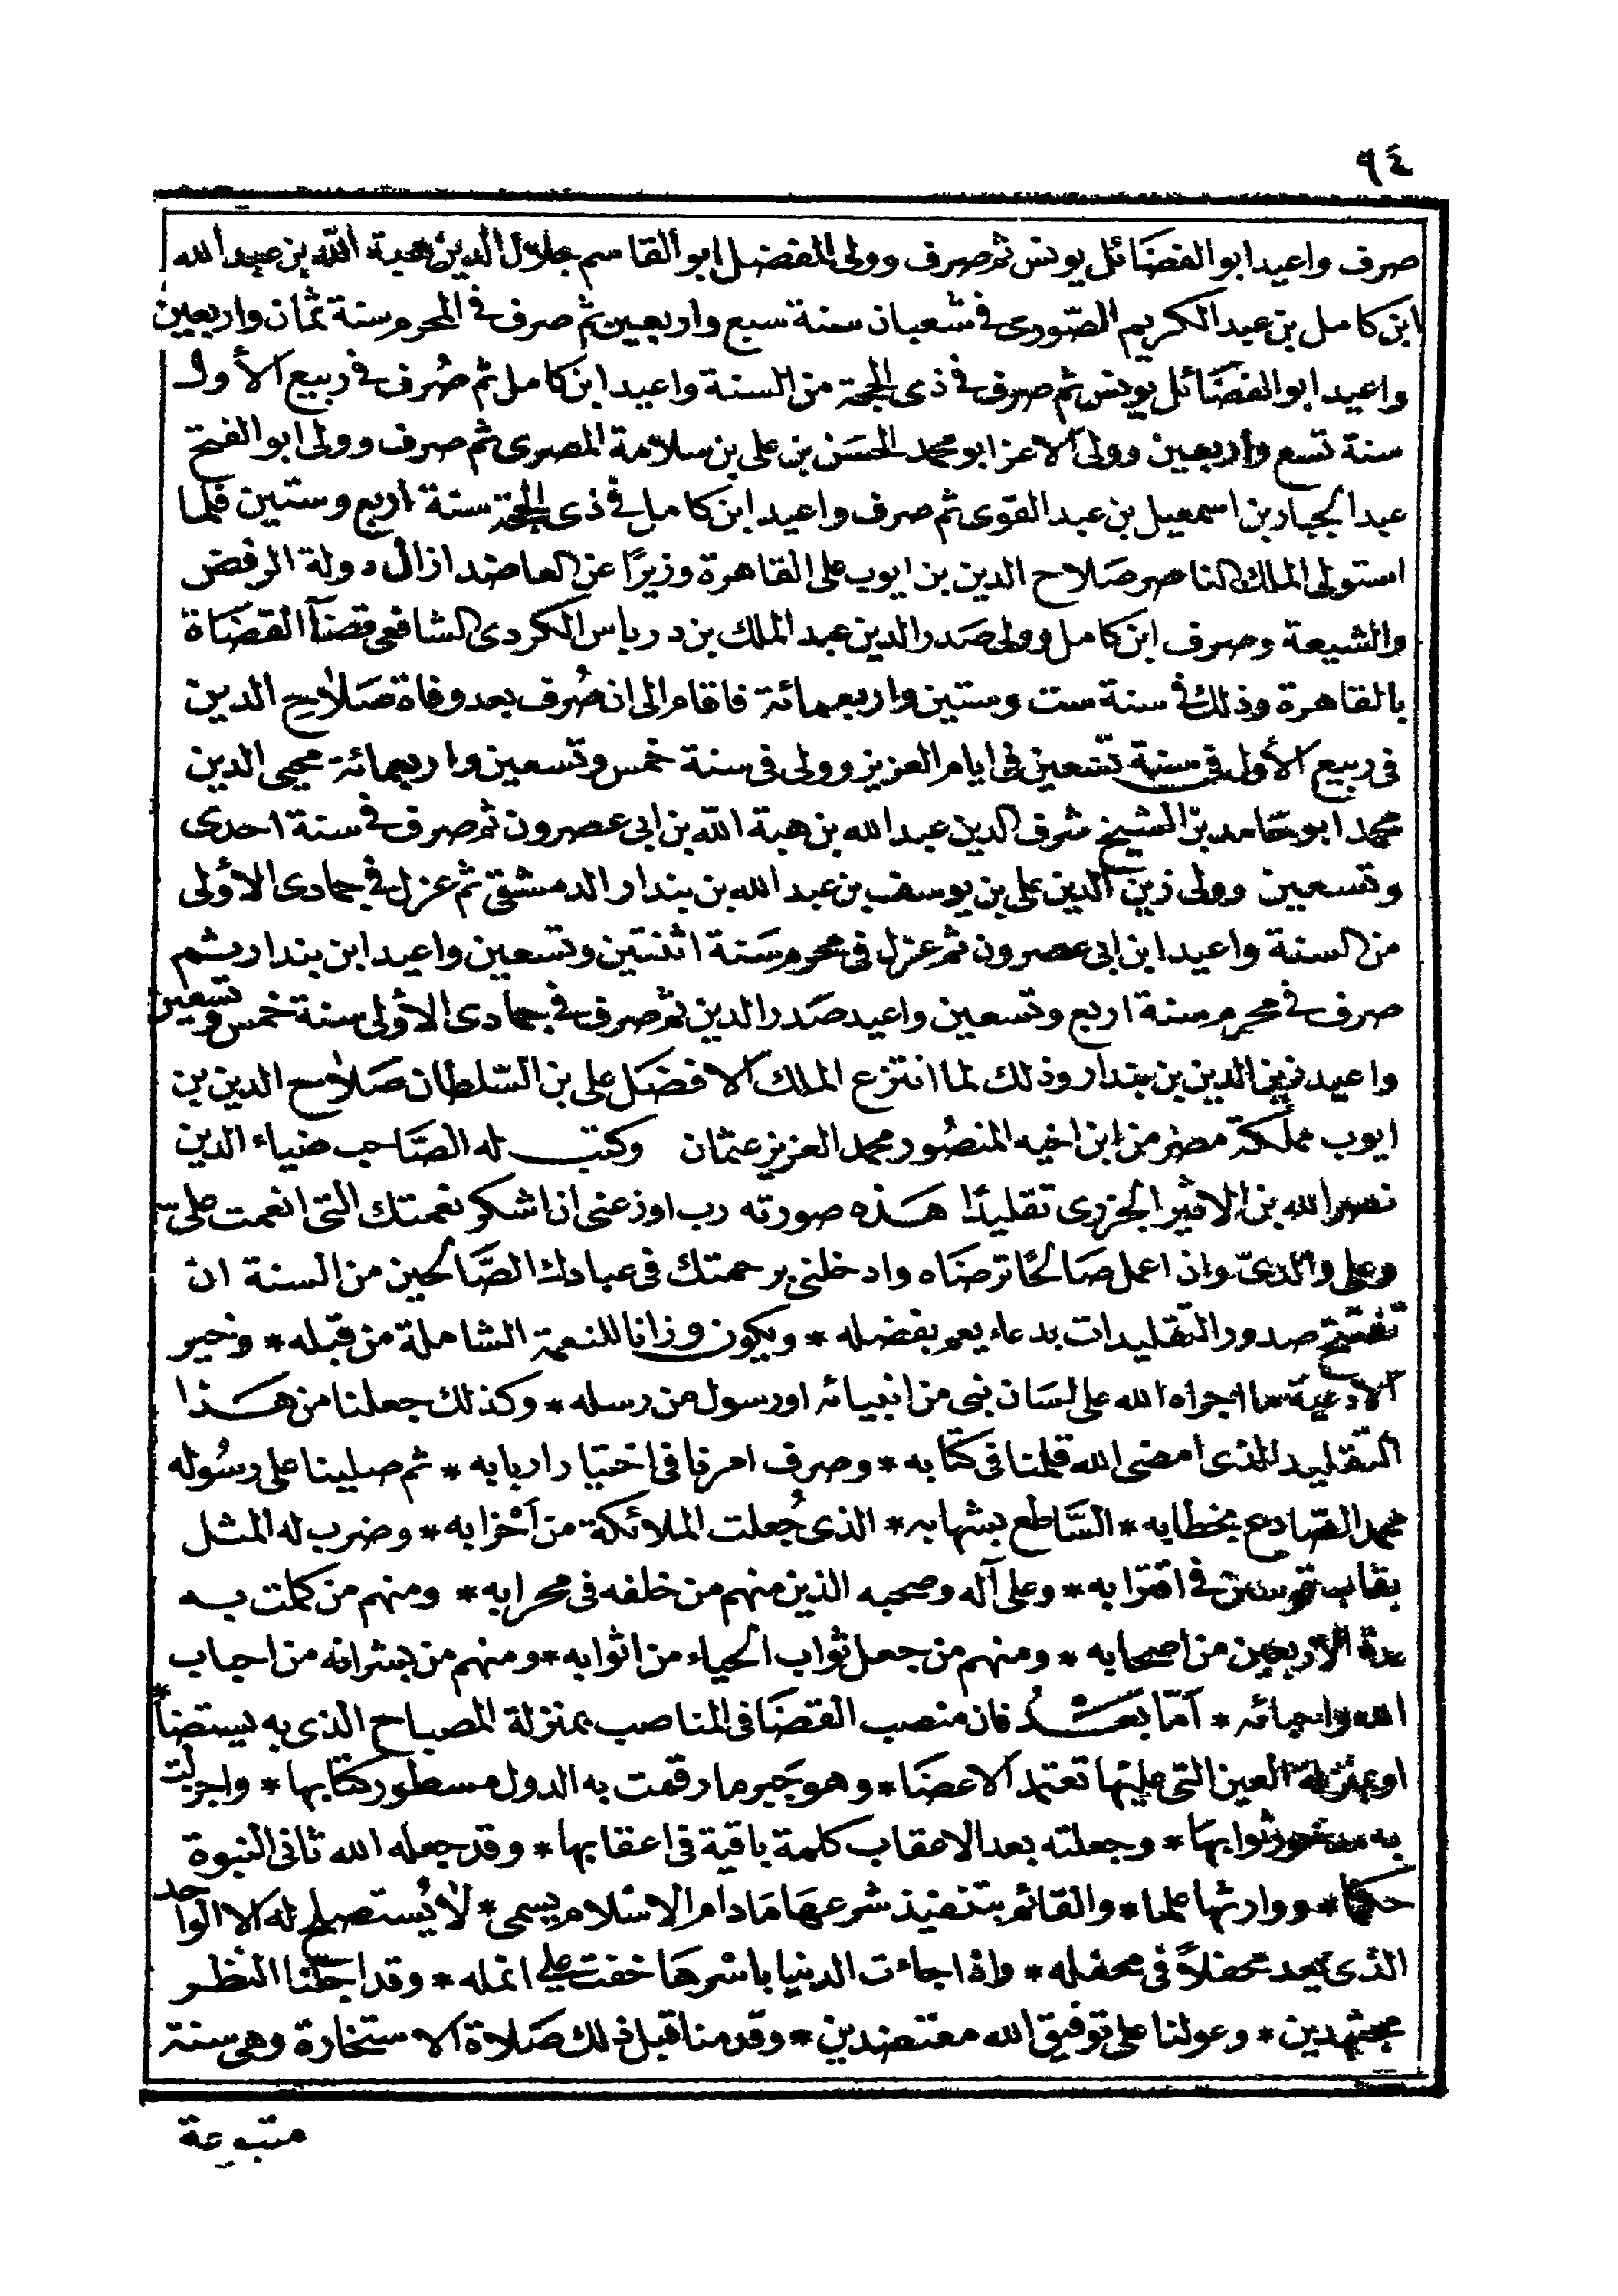 ٩٤
صرف واعيد ابو الفضَائل يونس ثم صرف وولى المفضل ابو القاسم جلال الدين هبة اللّه بن عبد الله
ابن كامل بن عبد الكريم الصّورى فى شعبان سنة سبع واربعين ثم صرف فى المحرم سنة ثمان واربعين
واعيد ابو الفضَائل يونس ثم صرف فى ذى الحجة من السنة واعيد ابن كامل ثم صُرف فى ربيع الأول
سنة تسع واربعين وولى الاعز ابو محمد الحسَن بن على بن سلامة المصرى ثم صرف وولى ابو الفتح
عبد الجبار بن اسمعيل بن عبد القوى ثم صرف واعيد ابن كامل فى ذى الحجة سنة اربع وستين فلما
استولى الملك الناصر صَلاح الدين بن ايوب على القاهرة وزيرًا عن العاضد ازال دولة الرفض
والشيعة وصرف ابن كامل وولى صَدر الدين عبد الملك بن درباس الكردى الشافعى قضآ القضَاة
بالقاهرة وذلك فى سنة ست وستين واربعمائة فاقام الى ان صُرف بعد وفاة صَلاح الدين
فى ربيع الأول فى سنة تسعين فى ايام العزيز وولى فى سنة خمس وتسعين واربعمائة محيى الدين
محمد ابو حَامد بن الشيخ شرف الدين عبد الله بن هبة اللّه بن ابى عصرون ثم صرف فى سنة احدى
وتسعين وولى زين الدين على بن يوسف بن عبد الله بن بندار الدمشقى ثم عزل فى جمادى الاولى
من السنة واعيد ابن ابى عصرون ثم عزل فى محرم سَنة اثنتين وتسعين واعيد ابن بندار يشم
صرف فى محرم سنة اربع وتسعين واعيد صَدر الدين ثم صرف فى جمادى الاولى سنة خمس وتسعين
واعيد زين الدين بن بندار وذلك لما انتزع الملك الافضَل على بن السّلطان صَلاح الدين بن
ايوب مملكة مصر من ابن اخيه المنصُور محمد العزيز عثمان وكتب له الصَّاحب ضياء الدين
نصر الله بن الاثير الجزرى تقليدًا هَذه صورته رب اوزعنى ان اشكر نعمتك التى انعمت علىّ
وعلى والدىّ واذ اعمل صَالحًا ترضَاه وادخلنى برحمتك فى عبادك الصَّالحين من السنة ان
تفتتح صدور التقليدات بدعاء يعم بفضله * ويكون وزانا للنعمة الشاملة من قبله * وخير
الادعية ما اجراه الله على لسَان نبى من انبيائه او رسول من رسله * وكذلك جعلنا من هَذا
التقليد الذى امضى الله قلمنا فى كتابه * وصرف امرنا فى اختيار اربابه * ثم صلينا على رسُوله
محمد الصَّادع بخطابه * السَّاطع بشهابه * الذى جُعلت الملائكة من اَحْزابه * وضرب له المثل
بقاب قوسين فى اقترابه * وعلى آله وصحبه الذين منهم من خلفه فى محرابه * ومنهم من كملت به
عدة الاربعين من اصحابه * ومنهم من جعل ثواب الحياء من اثوابه * ومنهم من بشرانه من احباب
الله واحبائه * اَمّا بَعَدُ فان منصب القضَا فى المناصب بمنزلة المصباح الذى به يستضأ *
او بمنزلة العين التى عليها تعتمد الاعضَا * وهو خير ما رقمت به الدول مسطور كتابها * واجزلت
به مذخور ثوابهَا * وجعلته بعد الاعقاب كلمة باقية فى اعقابها * وقد جعله الله ثانى النبوة
حكما * ووارثها علما * والقائم بتنفيذ شرعهَا مَادام الاسْلام يسمى * لا يُستصلح له الا الواحد
الذى يعد محفلاً فى محفله * واذا جاءت الدنيا باسْرهَا خفت على انمله * وقد اجلنا النظر
مجتهدين * وعولنا على توفيق الله معتضدين * وقدمنا قبل ذلك صَلاة الاستخارة وهى سنة
متبوعة